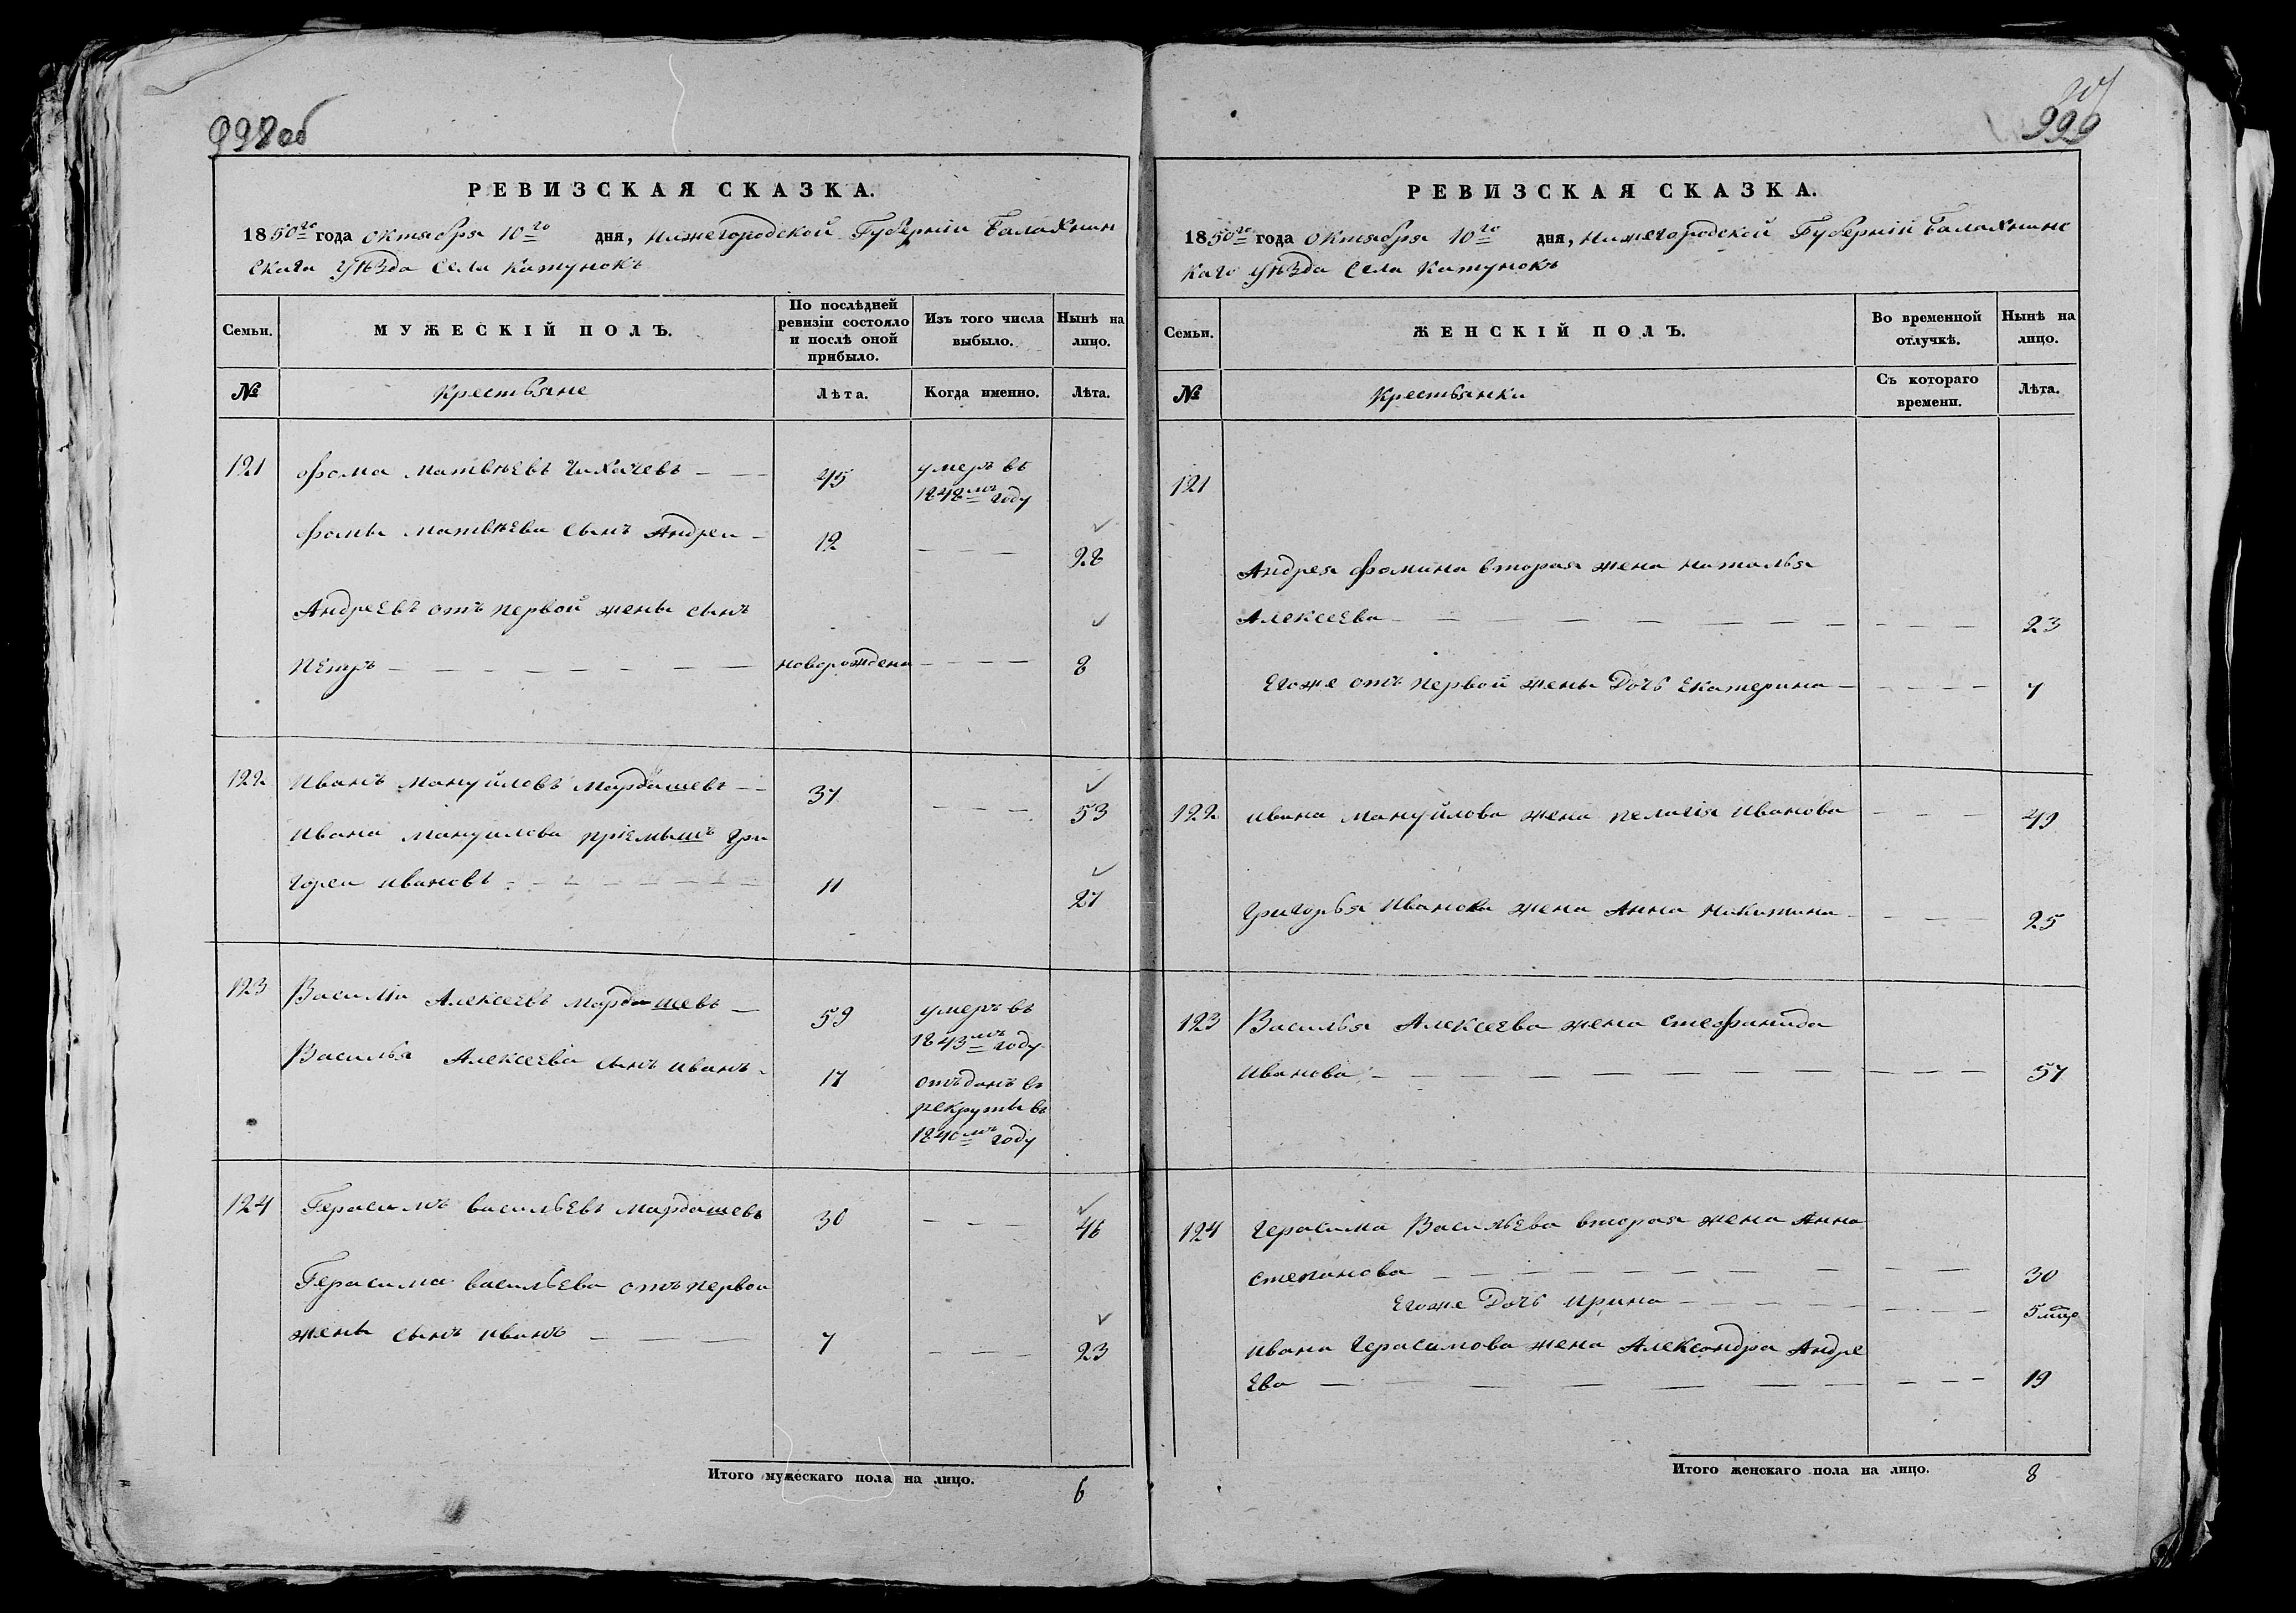 998об
РЕВИЗСКАЯ СКАЗКА.
1850го года октября 10го дня, Нижегородской Губерніи Балахнин
скаго уѣзда села Катунокъ
Семьи. МУЖЕСКІЙ ПОЛЪ. По послѣдней ревизіи состояло и послѣ оной прибыло. Изъ того числа выбыло. Нынѣ на лицо.
№ Крестьяне Лѣта. Когда именно. Лѣта.
121 Фома Матвѣевъ Чихачевъ — — 45 умеръ въ
1848мъ году
Фомы Матвѣева сынъ Андреи — 12 — — — 28
Андреевъ отъ первой жены сынъ
Петръ — — — — — — — — новорожденн — — — — 8
122 Иванъ Мануйловъ Мардашевъ — — 37 — — — 53
Ивана Мануилова пріемышъ Гри
гореи Ивановъ — — — — — — 11 27
123 Василіи Алексеевъ Мардашевъ — 59 умеръ въ
1843мъ году
Василья Алексеева сынъ Иванъ — 17 отъданъ въ
рекруты въ
1840мъ году
124 Герасимъ Васильевъ Мардашевъ 30 — — — 46
Герасима Васильева отъ первои
жены сынъ Иванъ — — — 7 — — — 23
Итого мужескаго пола на лицо. 6
999
РЕВИЗСКАЯ СКАЗКА.
1850го года Октября 10го дня, Нижегородской Губерніи Балахнинс
каго уѣзда села Катунокъ
Семьи. ЖЕНСКІЙ ПОЛЪ. Во временной отлучкѣ. Нынѣ на лицо.
№ Крестьянки Съ котораго времени. Лѣта.
121
Андрея Фомина вторая жена Наталья
Алексеева — — — — — — — — — — — 23
Егоже отъ первой жены Дочь Екатерина — — — — — 7
122 Ивана Мануйлова жена Пелагія Иванова — — — 49
Григорья Иванова жена Анна Никитина — — — 25
123 Василья Алексеева жена Стефанида
Иванова — — — — — — — — — — — 57
124 Герасима Васильева вторая жена Анна
Степанова — — — — — — — — — — — 30
Егоже Дочь Ирина — — — — — — — — 5 мцо
Ивана Герасимова жена Александра Андре
ева — — — — — — — — — 19
Итого женскаго пола на лицо. 8